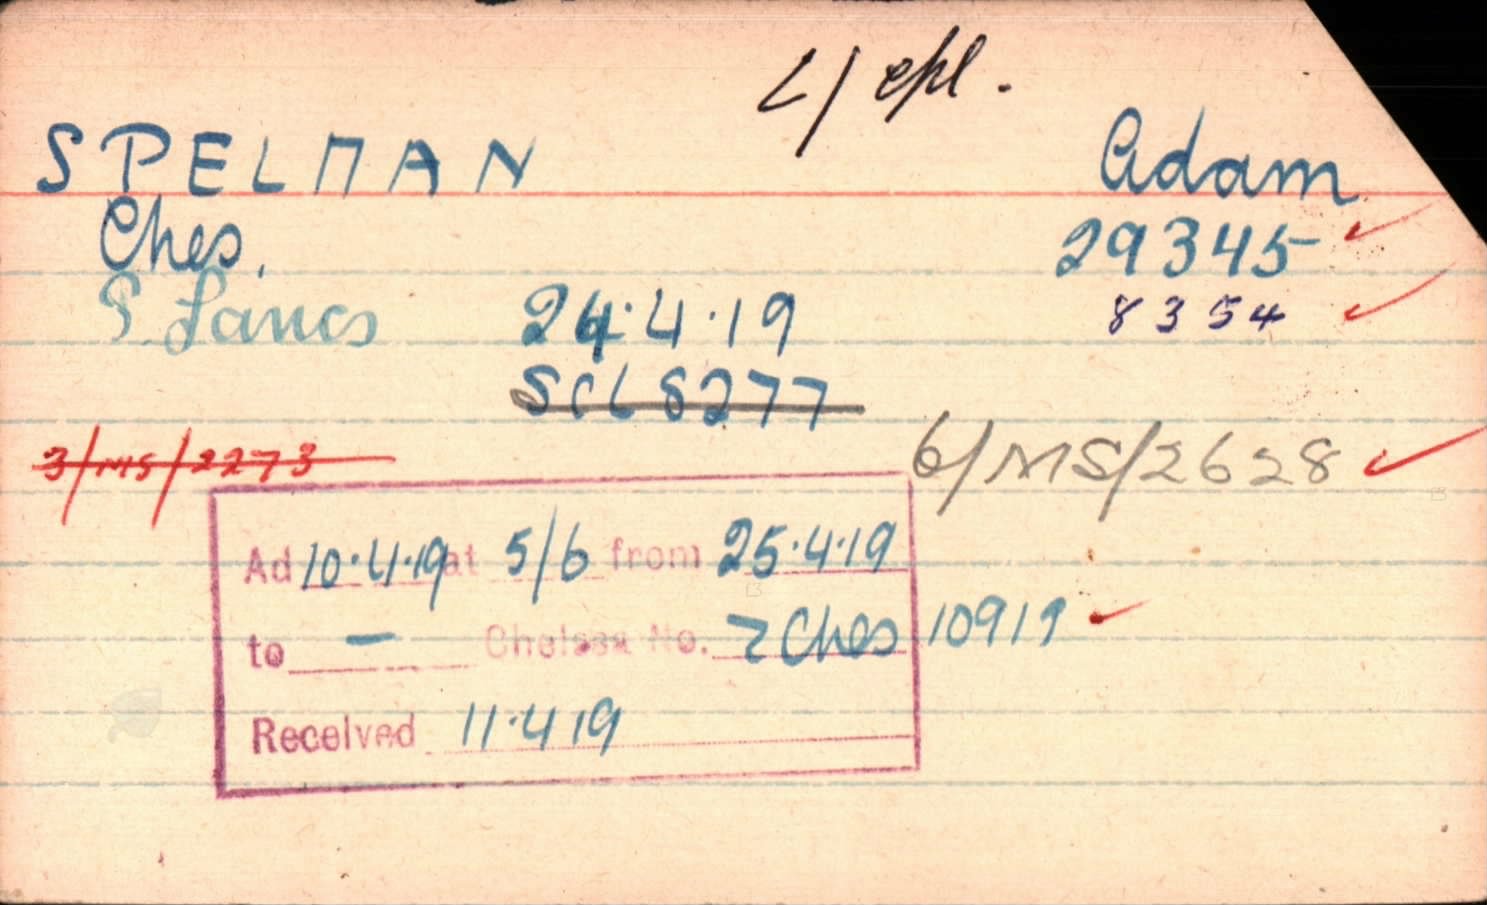 L/cpl.
SPELMAN Adam
Ches. 29345
P Lancs 24.4.19 8354
SCL 8277
3/MS/2273 6/MS/2628
Ad 10.4.19 at 5/6 from 25.4.19
to — Chelsea No. 2 Ches 10919
Received 11.4 19